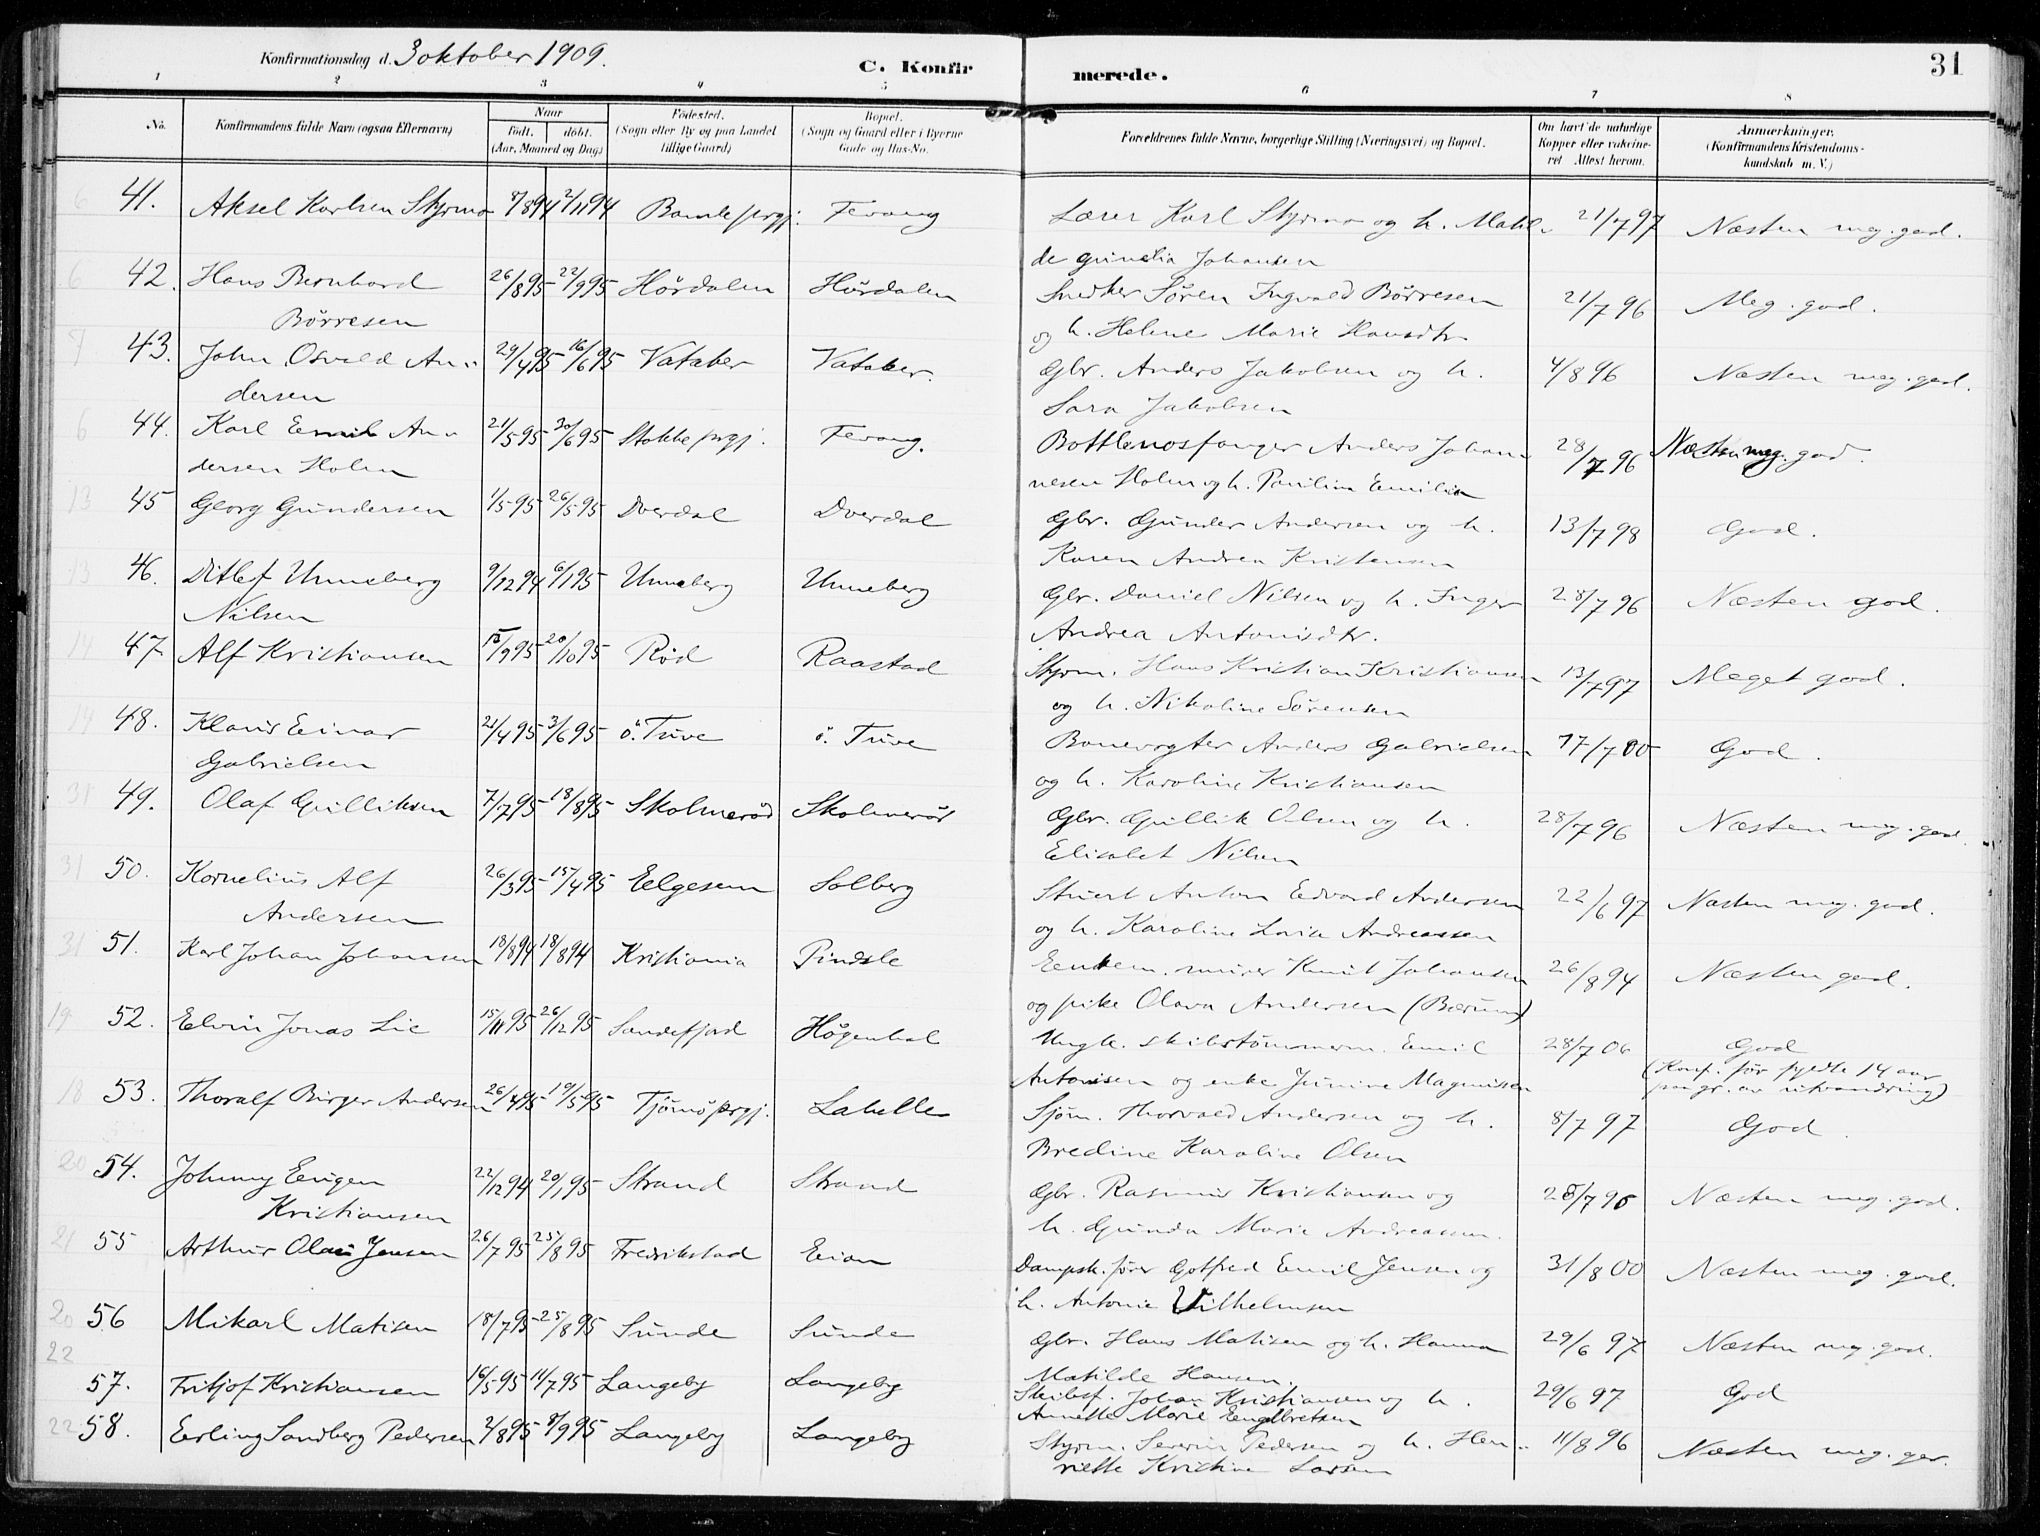 Konfirmationsdag d. 3 oktober 1909.
C. Konfirmerede.
31
1 2 3 4 5 6 7 8
No.
Konfirmandens fulde Navn (ogsaa Efternavn)
Naar
født. døbt.
(Aar, Maaned og Dag)
Fødested.
(Sogn eller By og paa Landet
tillige Gaard)
Bopæl.
(Sogn og Gaard eller i Byerne
Gade og Hus-No.
Forældrenes fulde Navne, borgerlige Stilling (Næringsvei) og Bopæl.
Om havt de naturlige
Kopper eller vakcine-
ret Attest herom.
Anmærkninger.
(Konfirmandens Kristendoms-
kundskab m. V.)
6 41. Aksel Karlsen Styrmo 8/8 94 2/11 94 Bamle prgj. Fevang Lærer Karl Styrmo og h. Matil- 21/7 97 Næsten meg. god.
de Gunelia Johansen
6 42. Hans Bernhard 26/8 95 22/9 95 Hördalen Hördalen Snedker Sören Ingvald Börresen 21/7 96 Meg. god.
Börresen og h. Helene Marie Hansdtr
7 43. John Osvald An- 29/4 95 16/6 95 Vataker Vataker. Gbr. Anders Jakobsen og h. 4/8 96 Næsten meg. god.
dersen Sara Jakobsen
6 44. Karl Emil An- 21/5 95 30/6 95 Stokke prgj. Fevang. Bottlenosfanger Anders Johan- 28/7 96 Næsten meg. god.
dersen Holm nesen Holm og h. Paulina Emilie
13 45 Georg Gundersen 1/5 95 26/5 95 Dverdal Dverdal Gbr. Gunder Andersen og h. 13/7 98 God.
Karen Andrea Kristensen
13 46. Ditlef Unneberg 9/12 94 6/1 95 Unneberg Unneberg Gbr. Daniel Nilsen og h. Inger 28/7 96 Næsten god.
Nilsen Andrea Antonisdtr.
14 47. Alf Kristiansen 15/9 95 20/10 95 Röd Raastad Styrm. Hans Kristian Kristiansen 13/7 97 Meget god.
og h. Nikoline Sörensen
14 48. Klaus Einar 21/4 95 3/6 95 ö. Tuve ö. Tuve Banevogter Anders Gabrielsen 17/7 00 God.
Gabrielsen og h. Karoline Kristiansen
31 49. Olaf Gulliksen 7/7 95 18/8 95 Skolmeröd Skolmeröd Gbr. Gullik Olsen og h. 28/7 96 Næsten meg. god.
Elisabet Nilsen
31 50. Kornelius Alf 26/3 95 15/4 95 Eelgesem Solberg Stuert Anton Edvard Andersen 22/6 97 Næsten meg. god.
Andersen og h. Karoline Lovise Andreassen
31 51. Karl Johan Johansen 18/8 94 18/8 94 Kristiania Pindsle Eenkem. murer Knut Johansen 26/8 94 Næsten god.
og pike Olava Andersen (Bærum)
19 52. Elvin Jonas Lie 15/11 95 26/12 95 Sandefjord Högenhal Ungk. skibstömmerm. Emil 28/7 06 God
Antonisen og enke Junine Magnussen (Konf. för fyldte 14 aar
paa gr. av utvandring)
18 53. Thoralf Birger Andersen 26/4 95 19/5 95 Tjömö prgj. Labelle Sjöm. Thorvald Andersen og h. 8/7 97 God
Bredine Karoline Olsen
20 54. Johnny Eugen 22/12 94 20/1 95 Strand Strand Gbr. Rasmus Kristiansen og 28/7 96 Næsten meg. god.
Kristiansen h. Gunda Marie Andreassen.
21 55 Arthur Olaus Jensen 26/7 95 25/8 95 Fredrikstad Eian Dampsk.förer Gotfred Emil Jensen og 31/8 00 Næsten meg. god.
h. Antonie Vilhelmsen
20 56 Mikael Matisen 18/7 95 25/8 95 Sunde Sunde Gbr. Hans Matisen og h. Hanna 29/6 97 Næsten meg. god.
Matilde Hansen.
22 57. Fritjof Kristiansen 16/5 95 14/7 95 Langeby Langeby Skibsf. Johan Kristiansen og h. 29/6 97 God
Annette Marie Engelbretsen
22 58. Eerling Sandberg Pedersen 2/8 95 8/9 95 Langeby Langeby Styrm. Severin Pedersen og h. Hen- 11/8 96 Næsten meg. god.
riette Kristine Larsen